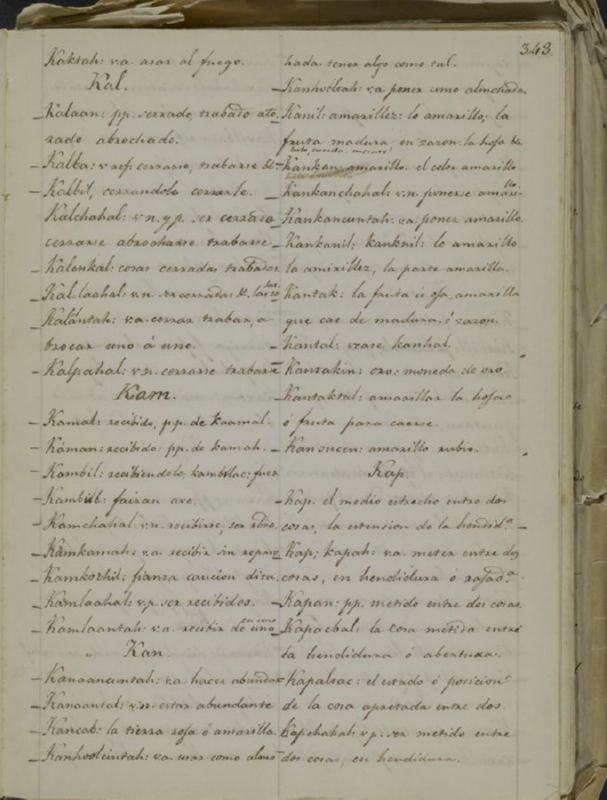 343.
Kaktah: va. asar al fuego.
Kal.
Kalaan: pp. serrado, trabado ato
rado abrochado.
Kalba: v ref. cerrarse, trabarse &
Kalbil, cerrandolo cerrarle.
Kalchahal: v.n. y p. ser cerrado
cerrarse abrocharse trabarse
Kalenkal: cosas cerradas trabadas
Kal laahal: v.n. ser cerradas &.
Kalántah: v.a. cerrar trabar, a-
brocar uno á uno.
Kalpahal: v.n. cerrarse trabarse
Kam.
Kamal: recibido, p.p. de kaamal.
Káman: recibido: pp. de kamah.
Kambil: recibiendolo; kambilac; fuex
Kambul: faisan ave.
Kamchahal: v.n. recibirse, ser
Kamkamah: v.a. recibir sin reparo
Kamkozhil: fianza caucion dita.
Kamlaahal: v.p. ser recibidos.
Kamlaantah: v.a. recibir de uno
en uno
Kan
Kanaancuntah: v.a. hacer abundar
Kanaantal: v.n. estar abundante
Kancab: la tierra roja ó amarilla.
Kanhoolcintah: v.a. usar como almo
hada tener algo como tal.
Kanhoolbah: v.a. poner como almohada.
Kanil: amarillez: lo amarillo; la
fruta madura, en zazon: la hoja &a.
Kankan: amarillo. el color amarillo
Kankanchahal: v.n. ponerse amari-
llo
Kankancuntah: va. poner amarillo.
Kankanil; kanknil: lo amarillo
la amarillez, la parte amarilla.
Kantak: la fruta ú oja, amarilla
que cae de madura, ó zazon.
Kantal: vease kanhal.
Kantakin: oro: moneda de oro.
Kantaktal: amarillar la hoja
ó fruta para caerse.
Kansucen: amarillo rubio.
Kap.
Kap. el medio estrecho entre dos
cosas, la estension de la hendida.
Kap; kapah: v.a. meter entre dos
cosas, en hendidura ó rajada.
Kapan: pp. metido entre dos cosas.
Kapacbal: la cosa metida entre
la hendidura ó abertura.
Kapalcac: el estado ó posicion
de la cosa apretada entre dos.
Kapchahal: v.p. ser metido entre
dos cosas, en hendidura.